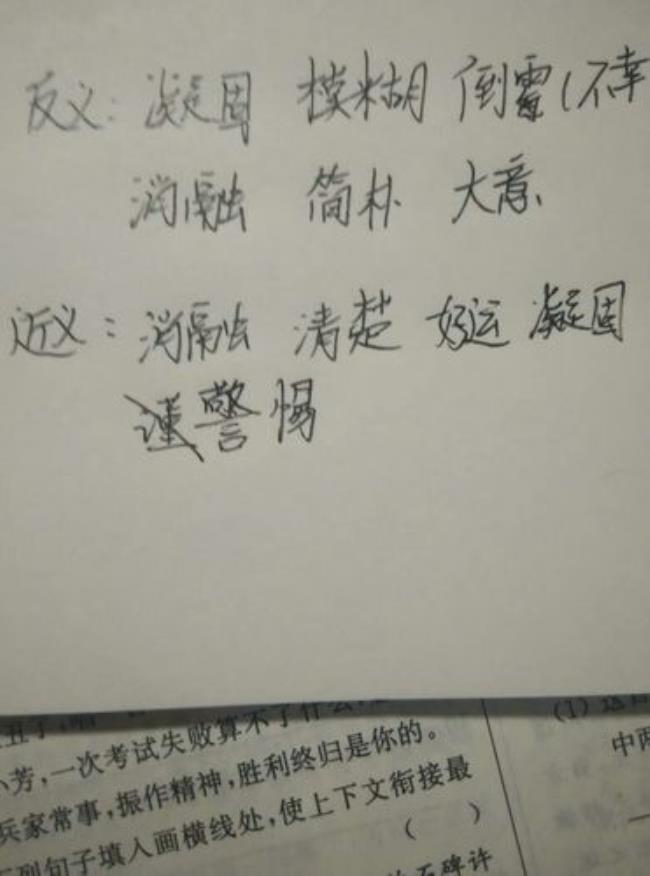 反义：凝固 模糊 倒霉（不幸
消融 简朴 大意
近义：消融 清楚 好运 凝固
谨警惕
小芳，一次考试失败算不了什么，
兵家常事，振作精神，胜利终归是你的。
列句子填入画横线处，使上下文衔接最
（ ）
石碑许
（1）这
中两